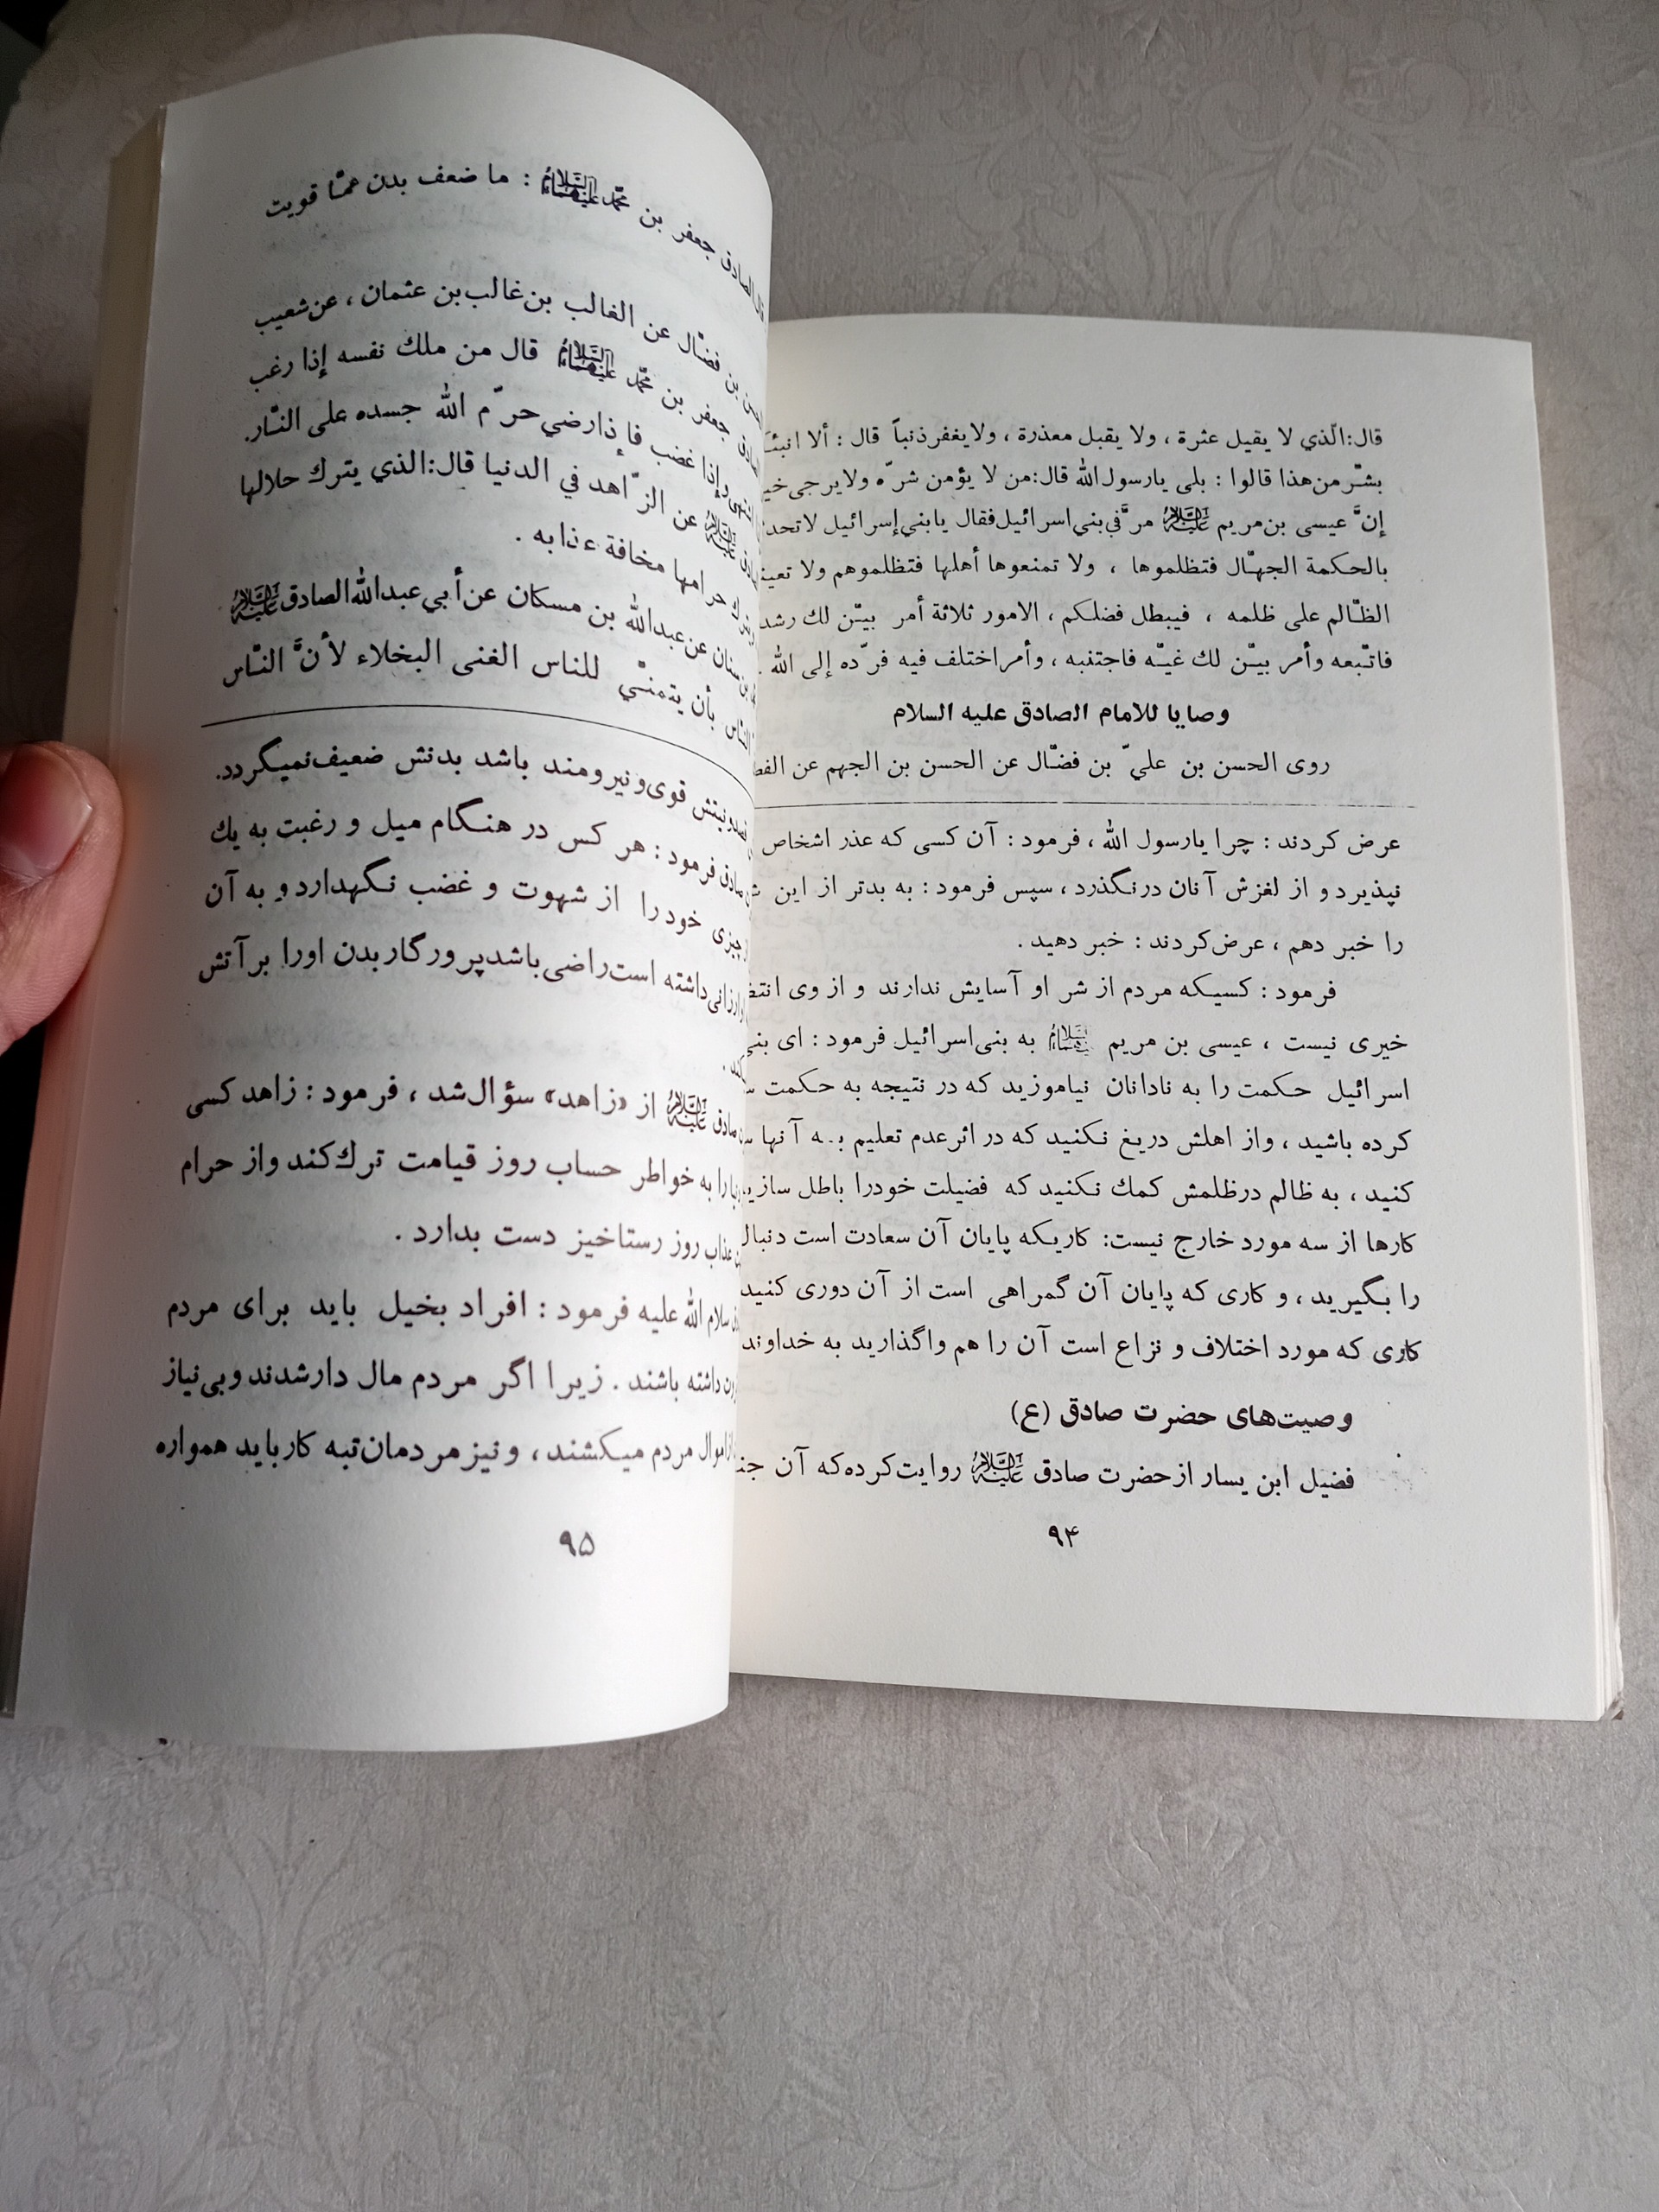 قال:الّذي لا يقيل عثرة ، ولا يقبل معذرة ، ولا يغفر ذنباً قال : ألا
بشرّ من هذا قالوا : بلى يارسول الله قال:من لا يؤمن شرّه ولا يرجى
إنَّ عيسى بن مريم عليه السلام مرَّ في بني اسرائيل فقال يا بني إسرائيل
بالحكمة الجهّال فتظلموها ، ولا تمنعوها أهلها فتظلموهم ولا
الظّالم على ظلمه ، فيبطل فضلكم ، الامور ثلاثة أمر بيّن لك
فاتّبعه وأمر بيّن لك غيّه فاجتنبه ، وأمر اختلف فيه فرّده إلى الله .
وصايا للامام الصادق عليه السلام
روى الحسن بن عليّ بن فضّال عن الحسن بن الجهم عن
عرض کردند : چرا يارسول الله ، فرمود : آن كسى كه عذر اشخاص
نپذيرد و از لغزش آنان درنگذرد ، سپس فرمود : به بدتر از اين
را خبر دهم ، عرض‌کردند : خبر دهيد .
فرمود : كسيكه مردم از شر او آسايش ندارند و از وى
خيرى نيست ، عيسى بن مريم عليهما السلام به بنى‌اسرائيل فرمود : اى بنى
اسرائيل حكمت را به نادانان نياموزيد كه در نتيجه به حكمت
كرده باشيد ، واز اهلش دريغ نكنيد كه در اثر عدم تعليم به آنها
كنيد ، به ظالم درظلمش كمك نكنيد كه فضيلت خودرا باطل
كارها از سه مورد خارج نيست: كاريكه پايان آن سعادت است دنبال
را بگيريد ، و كارى كه پايان آن گمراهى است از آن دورى كنيد
كارى كه مورد اختلاف و نزاع است آن را هم واگذاريد به خداوند
وصيت‌هاى حضرت صادق (ع)
فضيل ابن يسار از حضرت صادق عليه السلام روايت‌كرده‌كه آن
۹۴
قال الصادق جعفر بن محمّد عليهما السلام : ما ضعف بدن عمّا قويت
بن فضّال عن الغالب بن غالب بن عثمان ، عن شعيب
جعفر بن محمّد عليهما السلام قال من ملك نفسه إذا رغب
وإذا غضب فإذا رضي حرّم الله جسده على النّار.
عليه السلام عن الزّاهد في الدنيا قال:الذي يترك حلالها
حرامها مخافة عذابه .
بن سنان عن عبدالله بن مسكان عن أبي عبدالله الصادق عليه السلام
النّاس بأن يتمنّي للناس الغنى البخلاء لأنَّ النّاس
قوى و نيرومند باشد بدنش ضعيف نميگردد.
صادق فرمود : هر كس در هنگام ميل و رغبت به يك
چيزى خود را از شهوت و غضب نگهدارد و به آن
ارزانى‌داشته است راضى باشد پرورگار بدن اورا بر آتش
صادق عليه السلام از «زاهد» سؤال‌شد ، فرمود : زاهد كسى
را به خواطر حساب روز قيامت ترك‌كند واز حرام
عذاب روز رستاخيز دست بدارد .
سلام الله عليه فرمود : افراد بخيل بايد براى مردم
داشته باشند . زيرا اگر مردم مال دارشدند و بى‌نياز
اموال مردم ميكشند ، و نيز مردمان تبه كار بايد همواره
۹۵